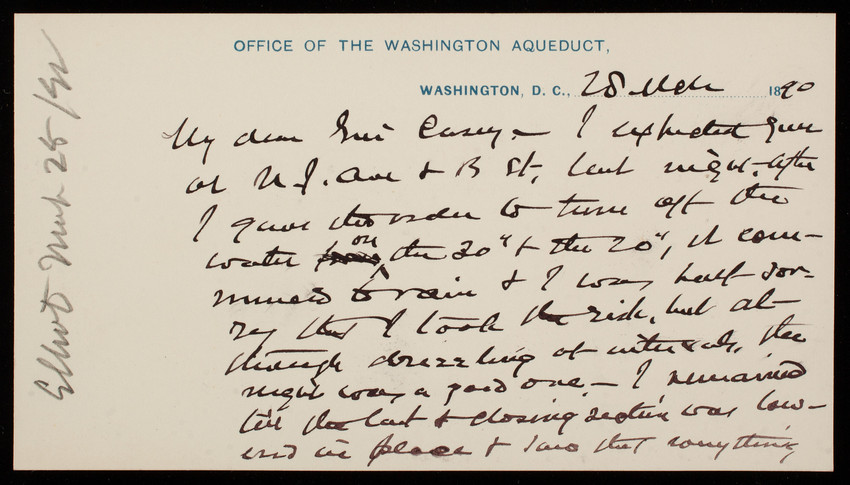 OFFICE OF THE WASHINGTON AQUEDUCT,
WASHINGTON, D. C., 28 Mch 1890
My dear Gen Casey - I expected you
at N.J. Ave & B St, last night, after
I gave the order to turn off the
water on the 30" & the 20", it com-
menced to rain & I was half sor-
ry that I took the risk, but al-
though drizzling at intervals, the
night was a good one - I remained
till the last & closing section was low-
ered in place & saw that everything
Elliot Mch 28/90